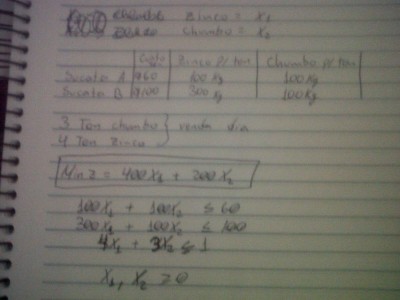 Zinco = X₁
Chumbo = X₂
Custo | Zinco p/ ton | Chumbo p/ ton
Sucata A | 960 | 100 Kg | 100 Kg
Sucata B | 9100 | 300 Kg | 100 Kg
3 Ton chumbo } venda
4 Ton Zinco
Min Z = 400X₁ + 200X₂
100X₁ + 100X₂ ≤ 60
300X₁ + 100X₂ ≤ 100
4X₁ + 3X₂ ≤ 1
X₁, X₂ > 0